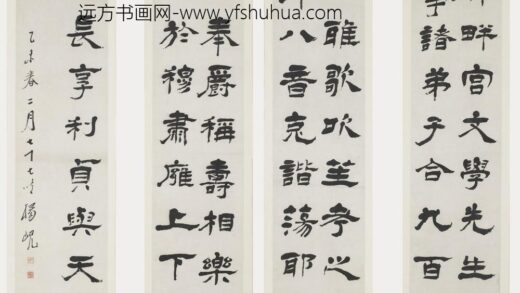 远方书画网- www.yfshuhua.com
畔宮文學先生
諸弟子合九百
雅歌吹笙考之
八音克諧蕩耶
奉爵稱壽相樂
於穆肅雍上下
長享利貞與天
乙未春二月七十七叟楊峴